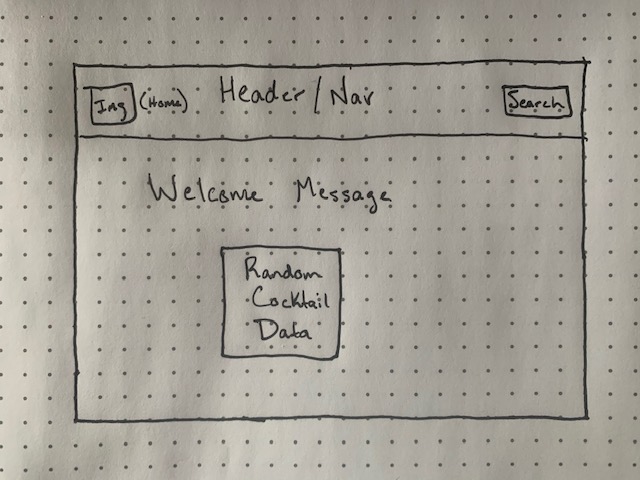 Img (Home) Header/Nav Search
Welcome Message
Random
Cocktail
Data